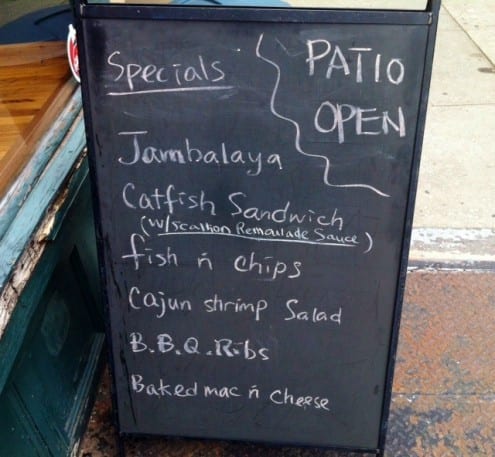 Specials
PATIO
OPEN
Jambalaya
Catfish Sandwich
(w/scallion Remaulade Sauce)
fish ñ chips
Cajun shrimp Salad
B.B.Q. Ribs
Baked mac ñ cheese